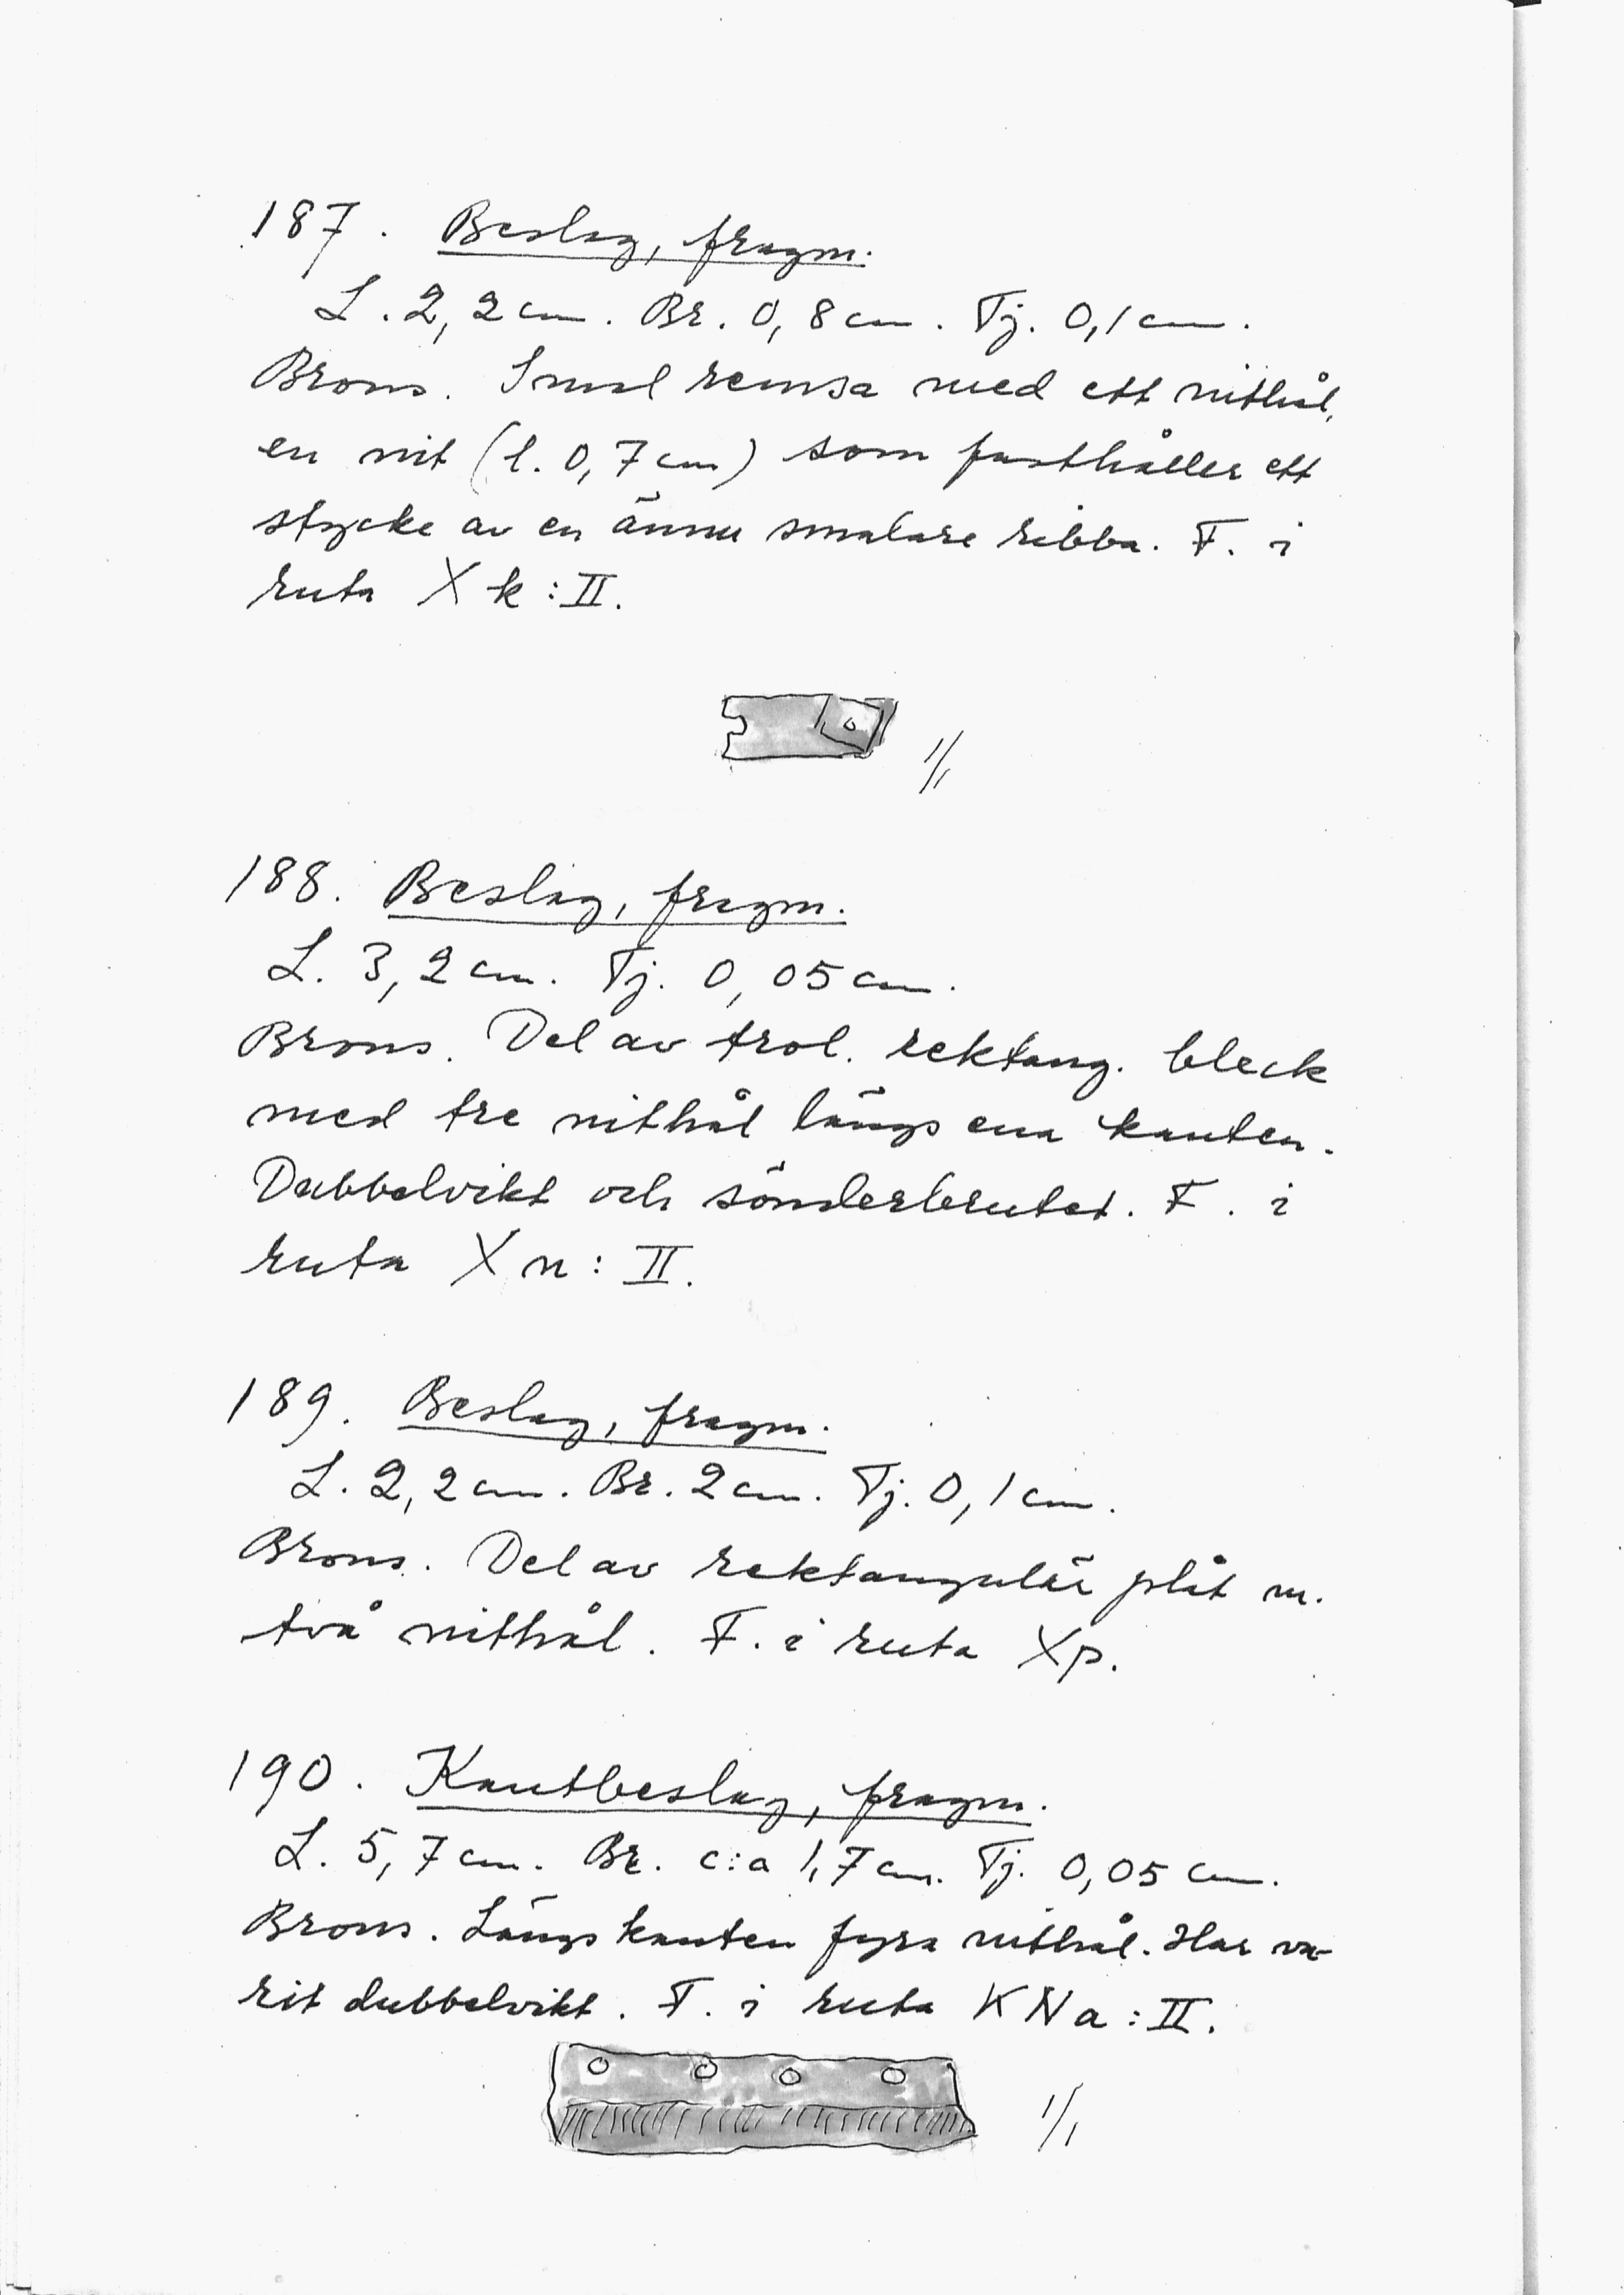 187. Beslag, fragm.
L. 2,2 cm. Br. 0,8 cm. Tj. 0,1 cm.
Brons. Smal remsa med ett nithål,
en nit (l. 0,7 cm) som fasthåller ett
stycke av en ännu smalare ribba. F. i
ruta X k : II.
1/1
188. Beslag, fragm.
L. 3,2 cm. Tj. 0,05 cm.
Brons. Del av trol. rektang. bleck
med tre nithål längs ena kanten.
Dubbelvikt och sönderbrutet. F. i
ruta X n : II.
189. Beslag, fragm.
L. 2,2 cm. Br. 2 cm. Tj. 0,1 cm.
Brons. Del av rektangulär plåt m.
två nithål. F. i ruta Xp.
190. Kantbeslag, fragm.
L. 5,7 cm. Br. c:a 1,7 cm. Tj. 0,05 cm.
Brons. Längs kanten fyra nithål. Har va-
rit dubbelvikt. F. i ruta KNa : II.
1/1